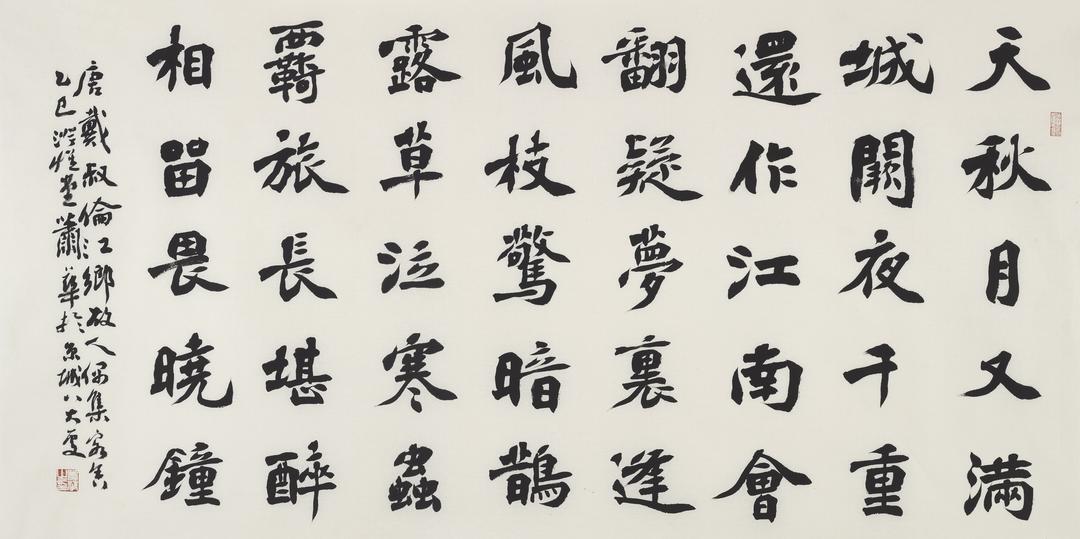 天秋月又滿
城闕夜千重
還作江南會
翻疑夢裏逢
風枝驚暗鵲
露草泣寒蟲
羈旅長堪醉
相留畏曉鐘
唐戴叔倫江鄉故人偶集客舍
乙巳澄懷堂蕭華於京城八大處